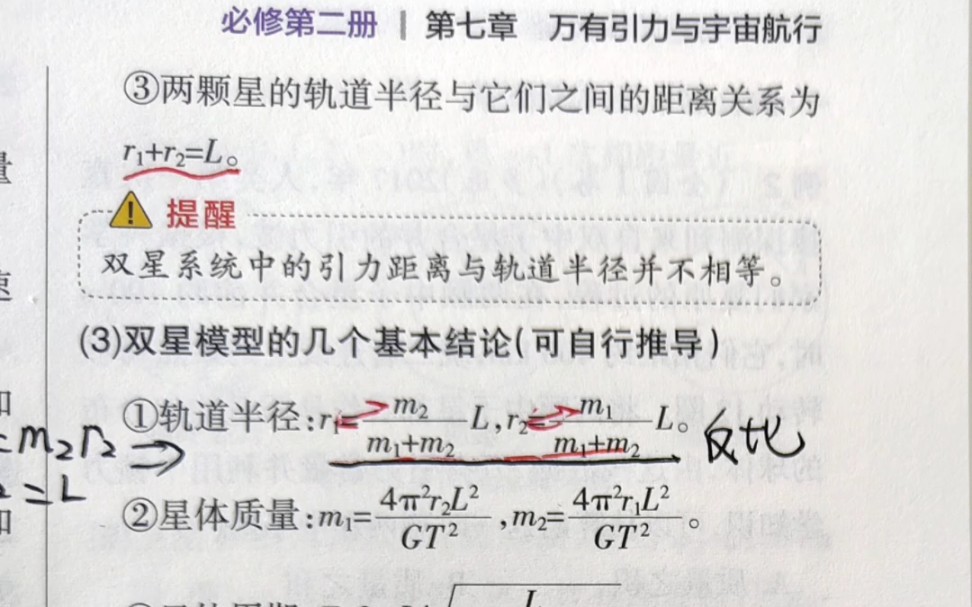 必修第二册 | 第七章 万有引力与宇宙航行
③两颗星的轨道半径与它们之间的距离关系为
r₁+r₂=L。
提醒
双星系统中的引力距离与轨道半径并不相等。
(3)双星模型的几个基本结论(可自行推导)
①轨道半径:r₁=m₂/(m₁+m₂) L,r₂=m₁/(m₁+m₂) L。 反比
=m₂r₂
=L
②星体质量:m₁=4π²r₂L²/GT²,m₂=4π²r₁L²/GT²。
量
速